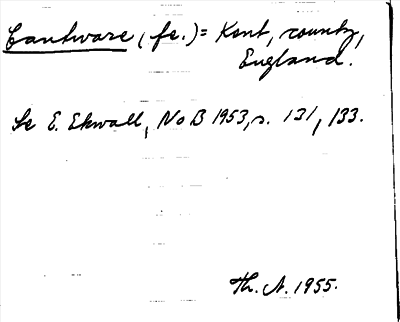 Cantware (fe.) = Kent, county,
England.
Se E. Ekwall, NoB 1953, s. 131, 133.
Th. A. 1955.